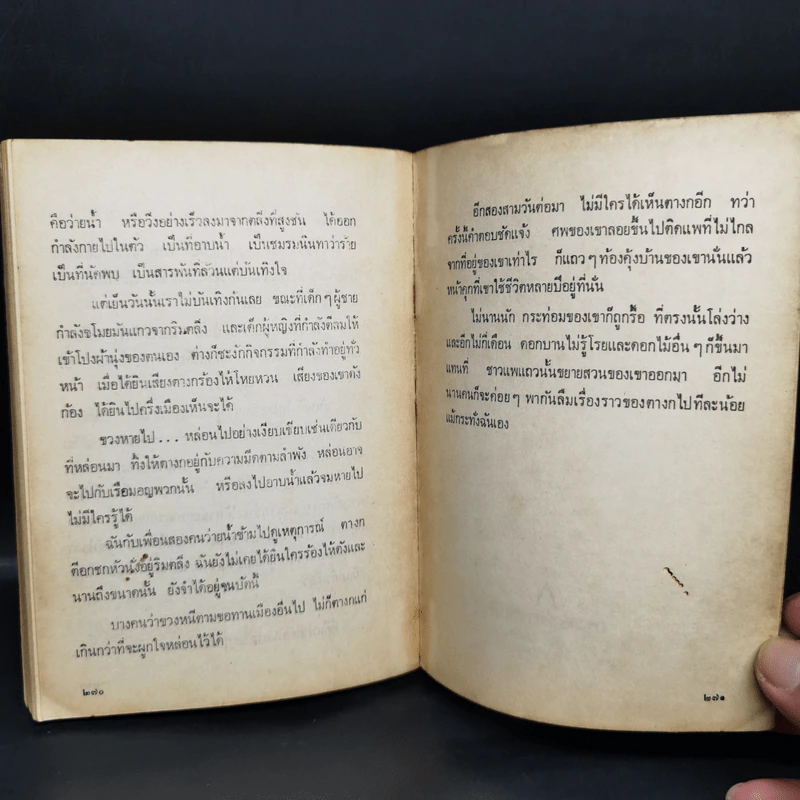 คือว่ายน้ำ หรือวิ่งอย่างเร็วลงมาจากตลิ่งที่สูงชัน ได้ออก
กำลังกายไปในตัว เป็นที่อาบน้ำ เป็นชมรมนินทาว่าร้าย
เป็นที่นัดพบ เป็นสารพันที่ล้วนแต่บันเทิงใจ
แต่เย็นวันนั้นเราไม่บันเทิงกันเลย ขณะที่เด็กๆผู้ชาย
กำลังขโมยมันแกวจากริมตลิ่ง และเด็กผู้หญิงที่กำลังตีลมให้
เข้าโป่งผ้านุ่งของตนเอง ต่างก็ชะงักกิจกรรมที่กำลังทำอยู่ทั่ว
หน้า เมื่อได้ยินเสียงตางกร้องไห้โหยหวน เสียงของเขาดัง
ก้อง ได้ยินไปครึ่งเมืองเห็นจะได้
ขวงหายไป ... หล่อนไปอย่างเงียบเชียบเช่นเดียวกับ
ที่หล่อนมา ทิ้งให้ตางกอยู่กับความมืดตามลำพัง หล่อนอาจ
จะไปกับเรือมอญพวกนั้น หรือลงไปอาบน้ำแล้วจมหายไป
ไม่มีใครรู้ได้
ฉันกับเพื่อนสองคนว่ายน้ำข้ามไปดูเหตุการณ์ ตางก
ตีอกชกหัวนั่งอยู่ริมตลิ่ง ฉันยังไม่เคยได้ยินใครร้องไห้ดังและ
นานถึงขนาดนั้น ยังจำได้อยู่จนบัดนี้
บางคนว่าขวงหนีตามขอทานเมืองอื่นไป ไม่ก็ตางกแก่
เกินกว่าที่จะผูกใจหล่อนไว้ได้
๒๗๐
อีกสองสามวันต่อมา ไม่มีใครได้เห็นตางกอีก ทว่า
ครั้งนี้คำตอบชัดแจ้ง ศพของเขาลอยขึ้นไปติดแพที่ไม่ไกล
จากที่อยู่ของเขาเท่าไร ก็แถวๆท้องคุ้งบ้านของเขานั่นแล้ว
หน้าคุกที่เขาใช้ชีวิตหลายปีอยู่ที่นั่น
ไม่นานนัก กระท่อมของเขาก็ถูกรื้อ ที่ตรงนั้นโล่งว่าง
และอีกไม่กี่เดือน ดอกบานไม่รู้โรยและดอกไม้อื่นๆก็ขึ้นมา
แทนที่ ชาวแพแถวนั้นขยายสวนของเขาออกมา อีกไม่
นานคนก็จะค่อยๆ พากันลืมเรื่องราวของตางกไปทีละน้อย
แม้กระทั่งฉันเอง
๒๗๑